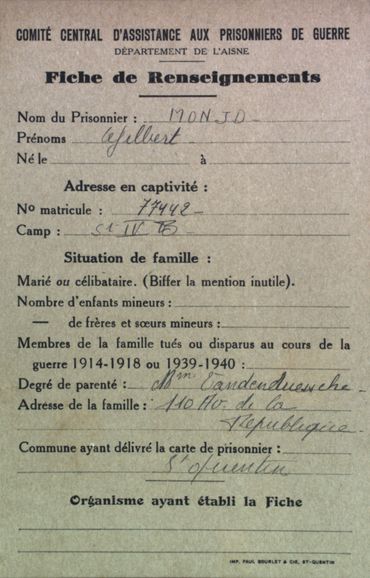 COMITÉ CENTRAL D'ASSISTANCE AUX PRISONNIERS DE GUERRE
DÉPARTEMENT DE L'AISNE
Fiche de Renseignements
Nom du Prisonnier :
Prénoms Gilbert
Né le à
Adresse en captivité :
No matricule : 77442
Camp : St IV B
Situation de famille :
Marié ou célibataire. (Biffer la mention inutile).
Nombre d'enfants mineurs :
— de frères et sœurs mineurs :
Membres de la famille tués ou disparus au cours de la
guerre 1914-1918 ou 1939-1940 :
Degré de parenté : Mme
Adresse de la famille : 110 Av. de la
République
Commune ayant délivré la carte de prisonnier :
St Quentin
Organisme ayant établi la Fiche
IMP. PAUL BOURLET & CIE, ST-QUENTIN